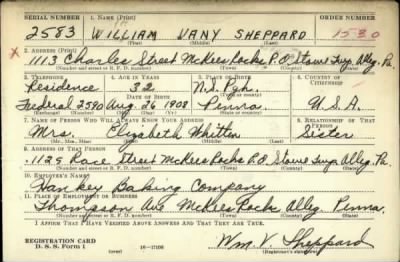 SERIAL NUMBER 1. NAME (Print) ORDER NUMBER
2583 WILLIAM VANY SHEPPARD 1530
(First) (Middle) (Last)
2. ADDRESS (Print)
x 1113 Charles Street McKees Rocks P.O. Stowe Twp. Alleg. Pa.
(Number and street or R. F. D. number) (Town) (County) (State)
3. TELEPHONE 4. AGE IN YEARS 5. PLACE OF BIRTH 6. COUNTRY OF CITIZENSHIP
Residence 32 N.S. Pgh.
DATE OF BIRTH (Town or county)
Federal 2590 Aug. 26 1908 Penna. U.S.A.
(Exchange) (Number) (Mo.) (Day) (Yr.) (State or country)
7. NAME OF PERSON WHO WILL ALWAYS KNOW YOUR ADDRESS 8. RELATIONSHIP OF THAT PERSON
Mrs. Elizabeth Whitten Sister
(Mr., Mrs., Miss) (First) (Middle) (Last)
9. ADDRESS OF THAT PERSON
1129 Race Street McKees Rocks P.O. Stowe Twp Alleg. Pa
(Number and street or R. F. D. number) (Town) (County) (State)
10. EMPLOYER'S NAME
Hankey Baking Company
11. PLACE OF EMPLOYMENT OR BUSINESS
Thompson Ave McKees Rocks Alleg Penna.
(Number and street or R. F. D. number) (Town) (County) (State)
I AFFIRM THAT I HAVE VERIFIED ABOVE ANSWERS AND THAT THEY ARE TRUE.
REGISTRATION CARD
D. S. S. Form 1 16-17105 Wm. V. Sheppard
(Registrant's signature)